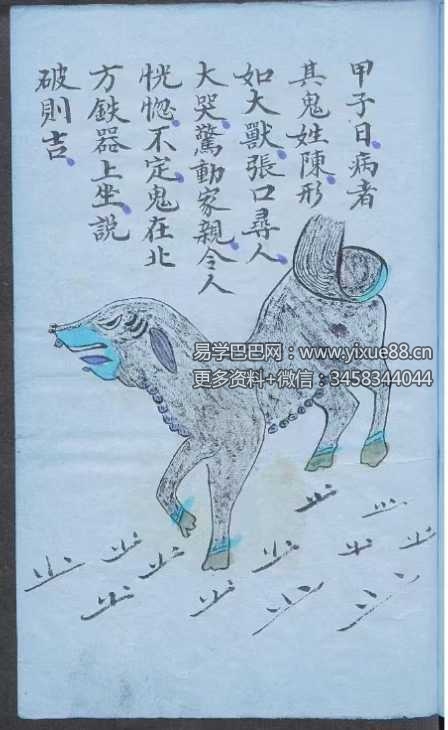 甲子日病者
其鬼姓陳形
如大獸張口尋人
大哭驚動家親令人
恍惚不定鬼在北
方鉄器上坐說
破則吉
易学巴巴网：www.yixue88.cn
更多资料+微信：3458344044